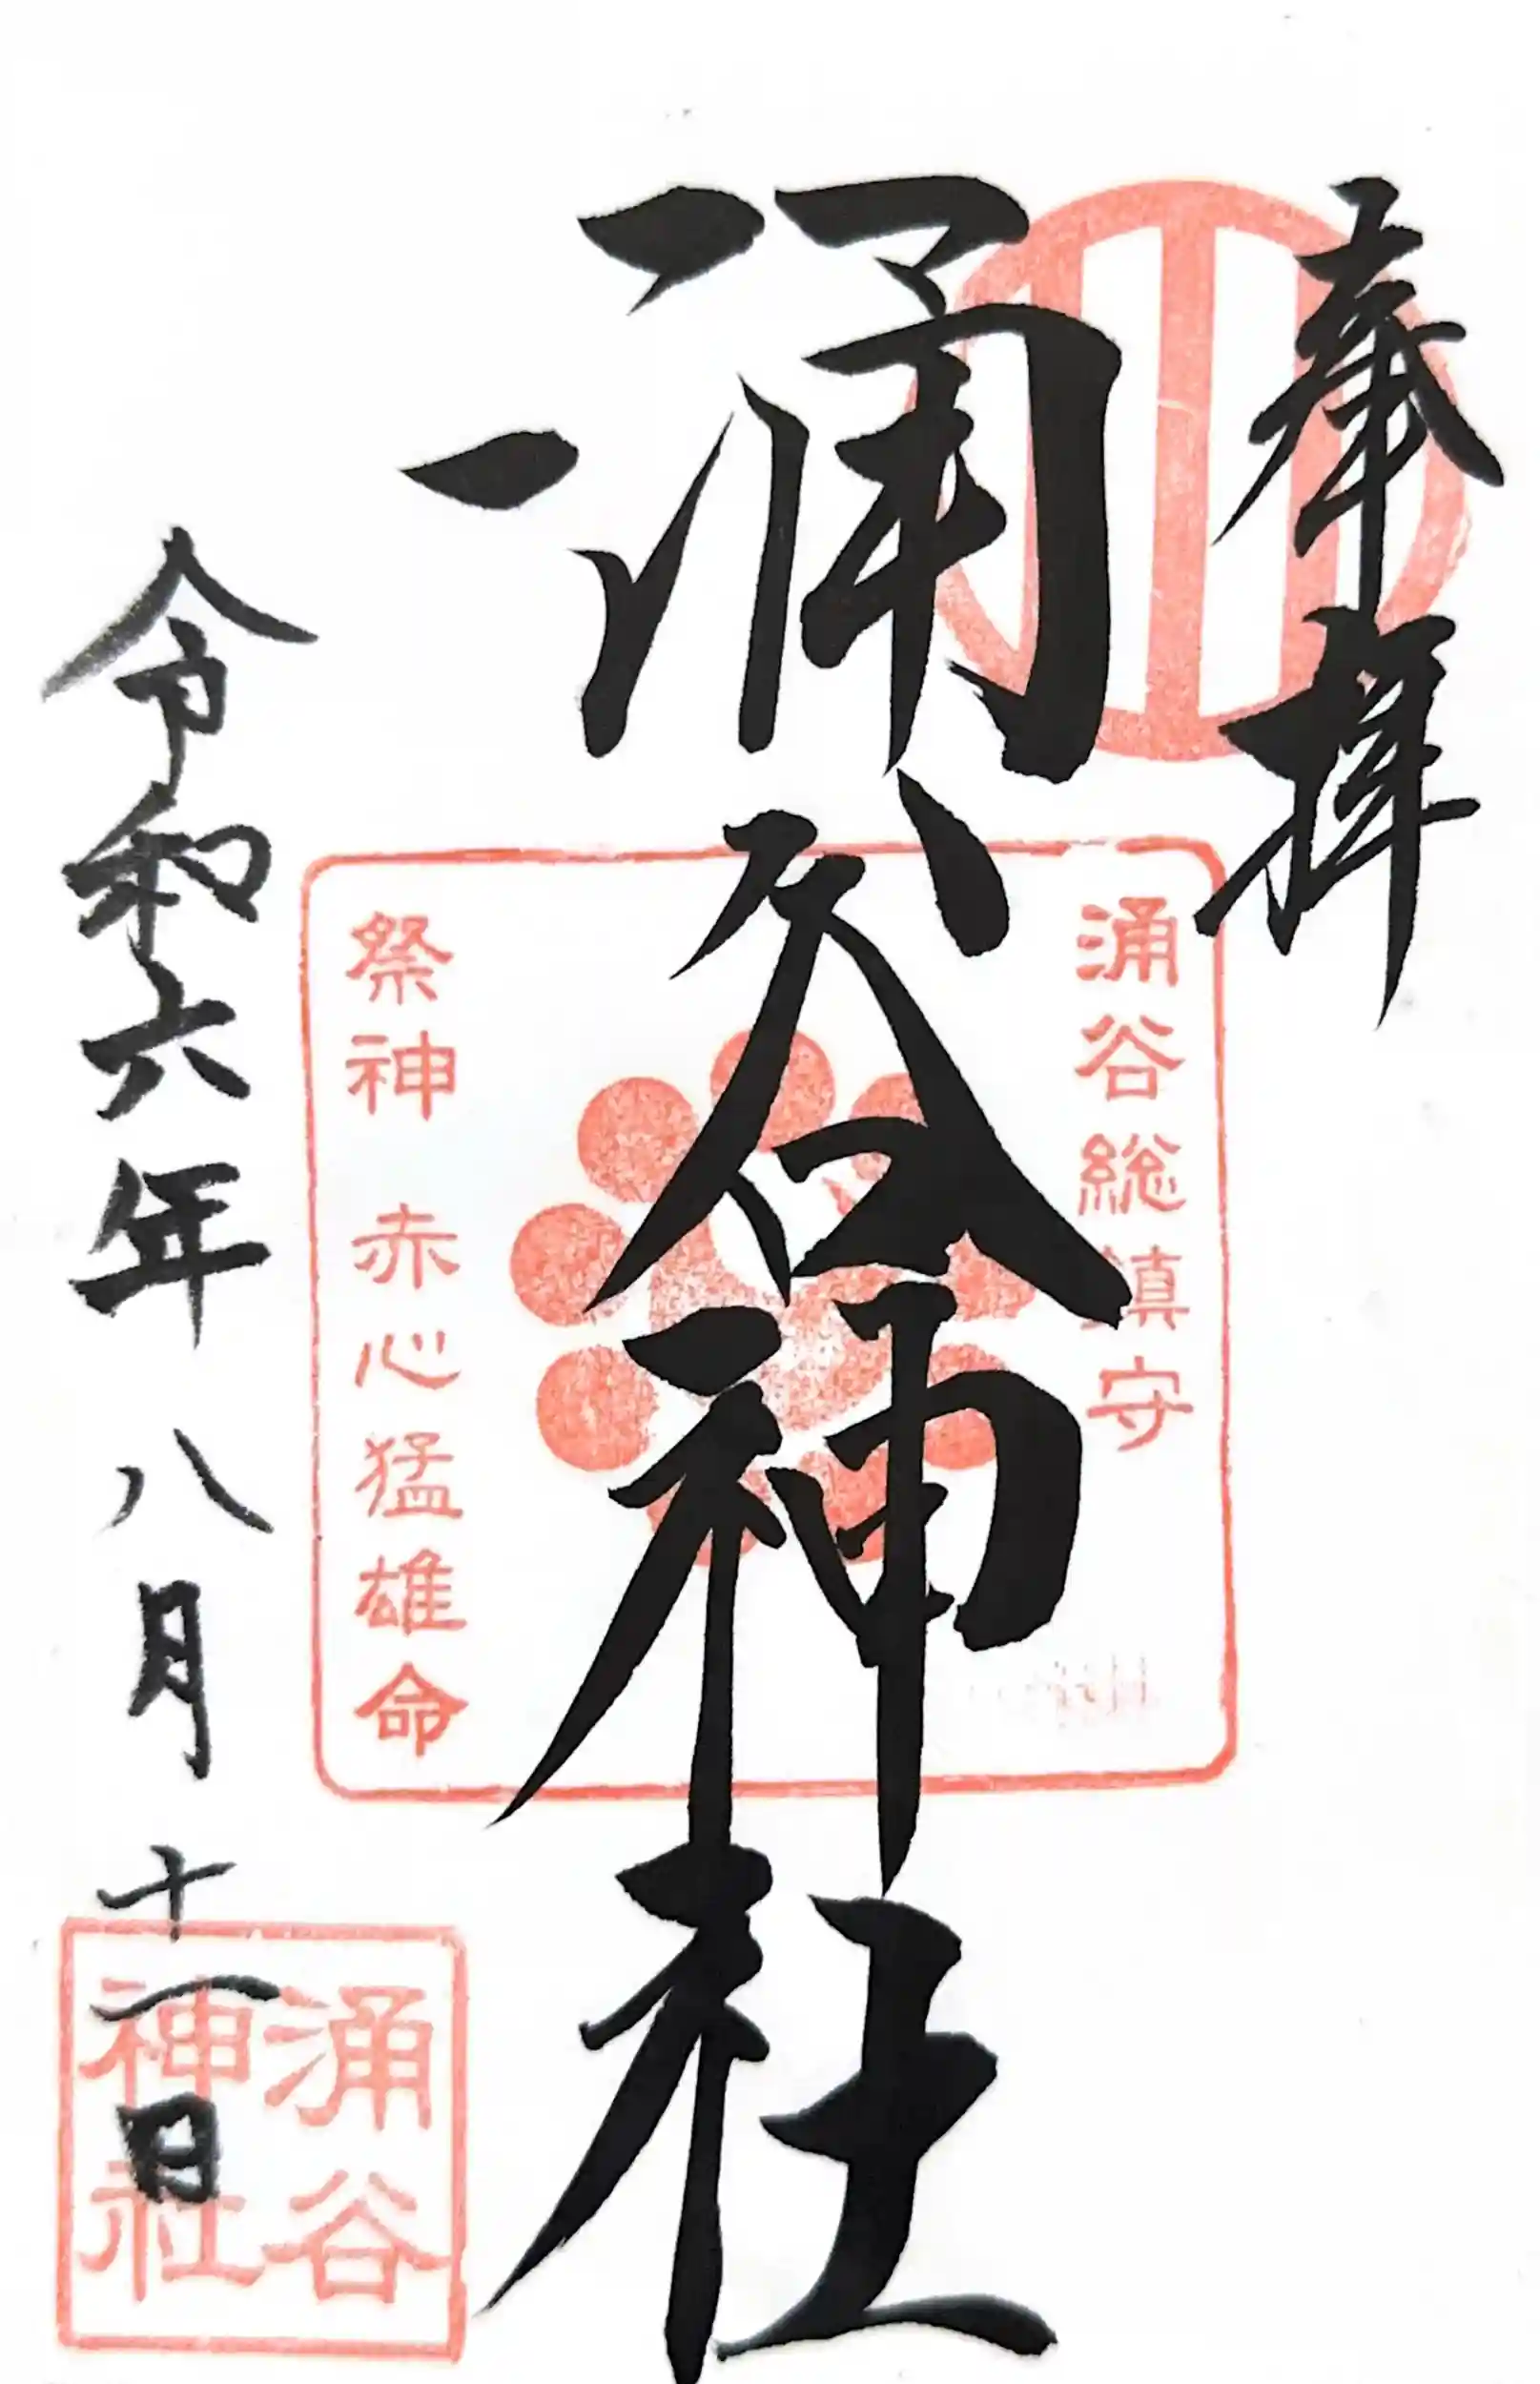 奉拝
涌谷神社
涌谷総鎮守
祭神 赤心猛雄命
令和六年八月十一日
涌谷
神社